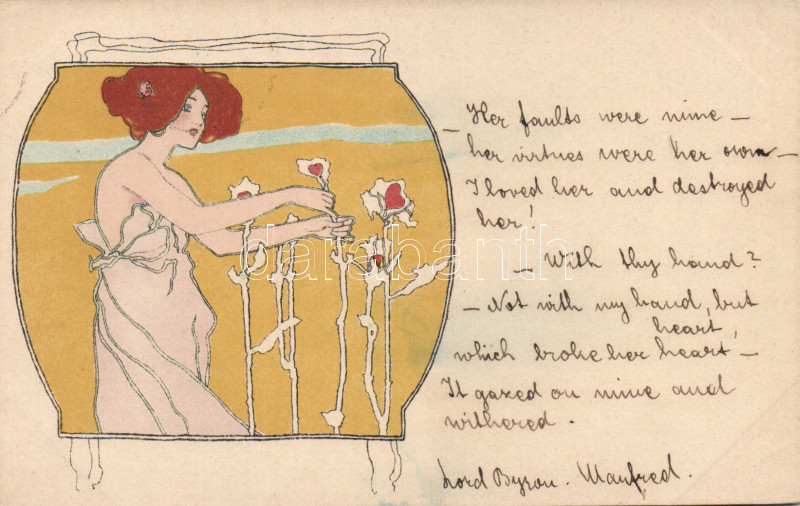 — Her faults were mine —
her virtues were her own —
I loved her and destroyed
her!
— With thy hand?
— Not with my hand, but
heart,
which broke her heart —
It gazed on mine and
withered.
Lord Byron. Manfred.
darabanth